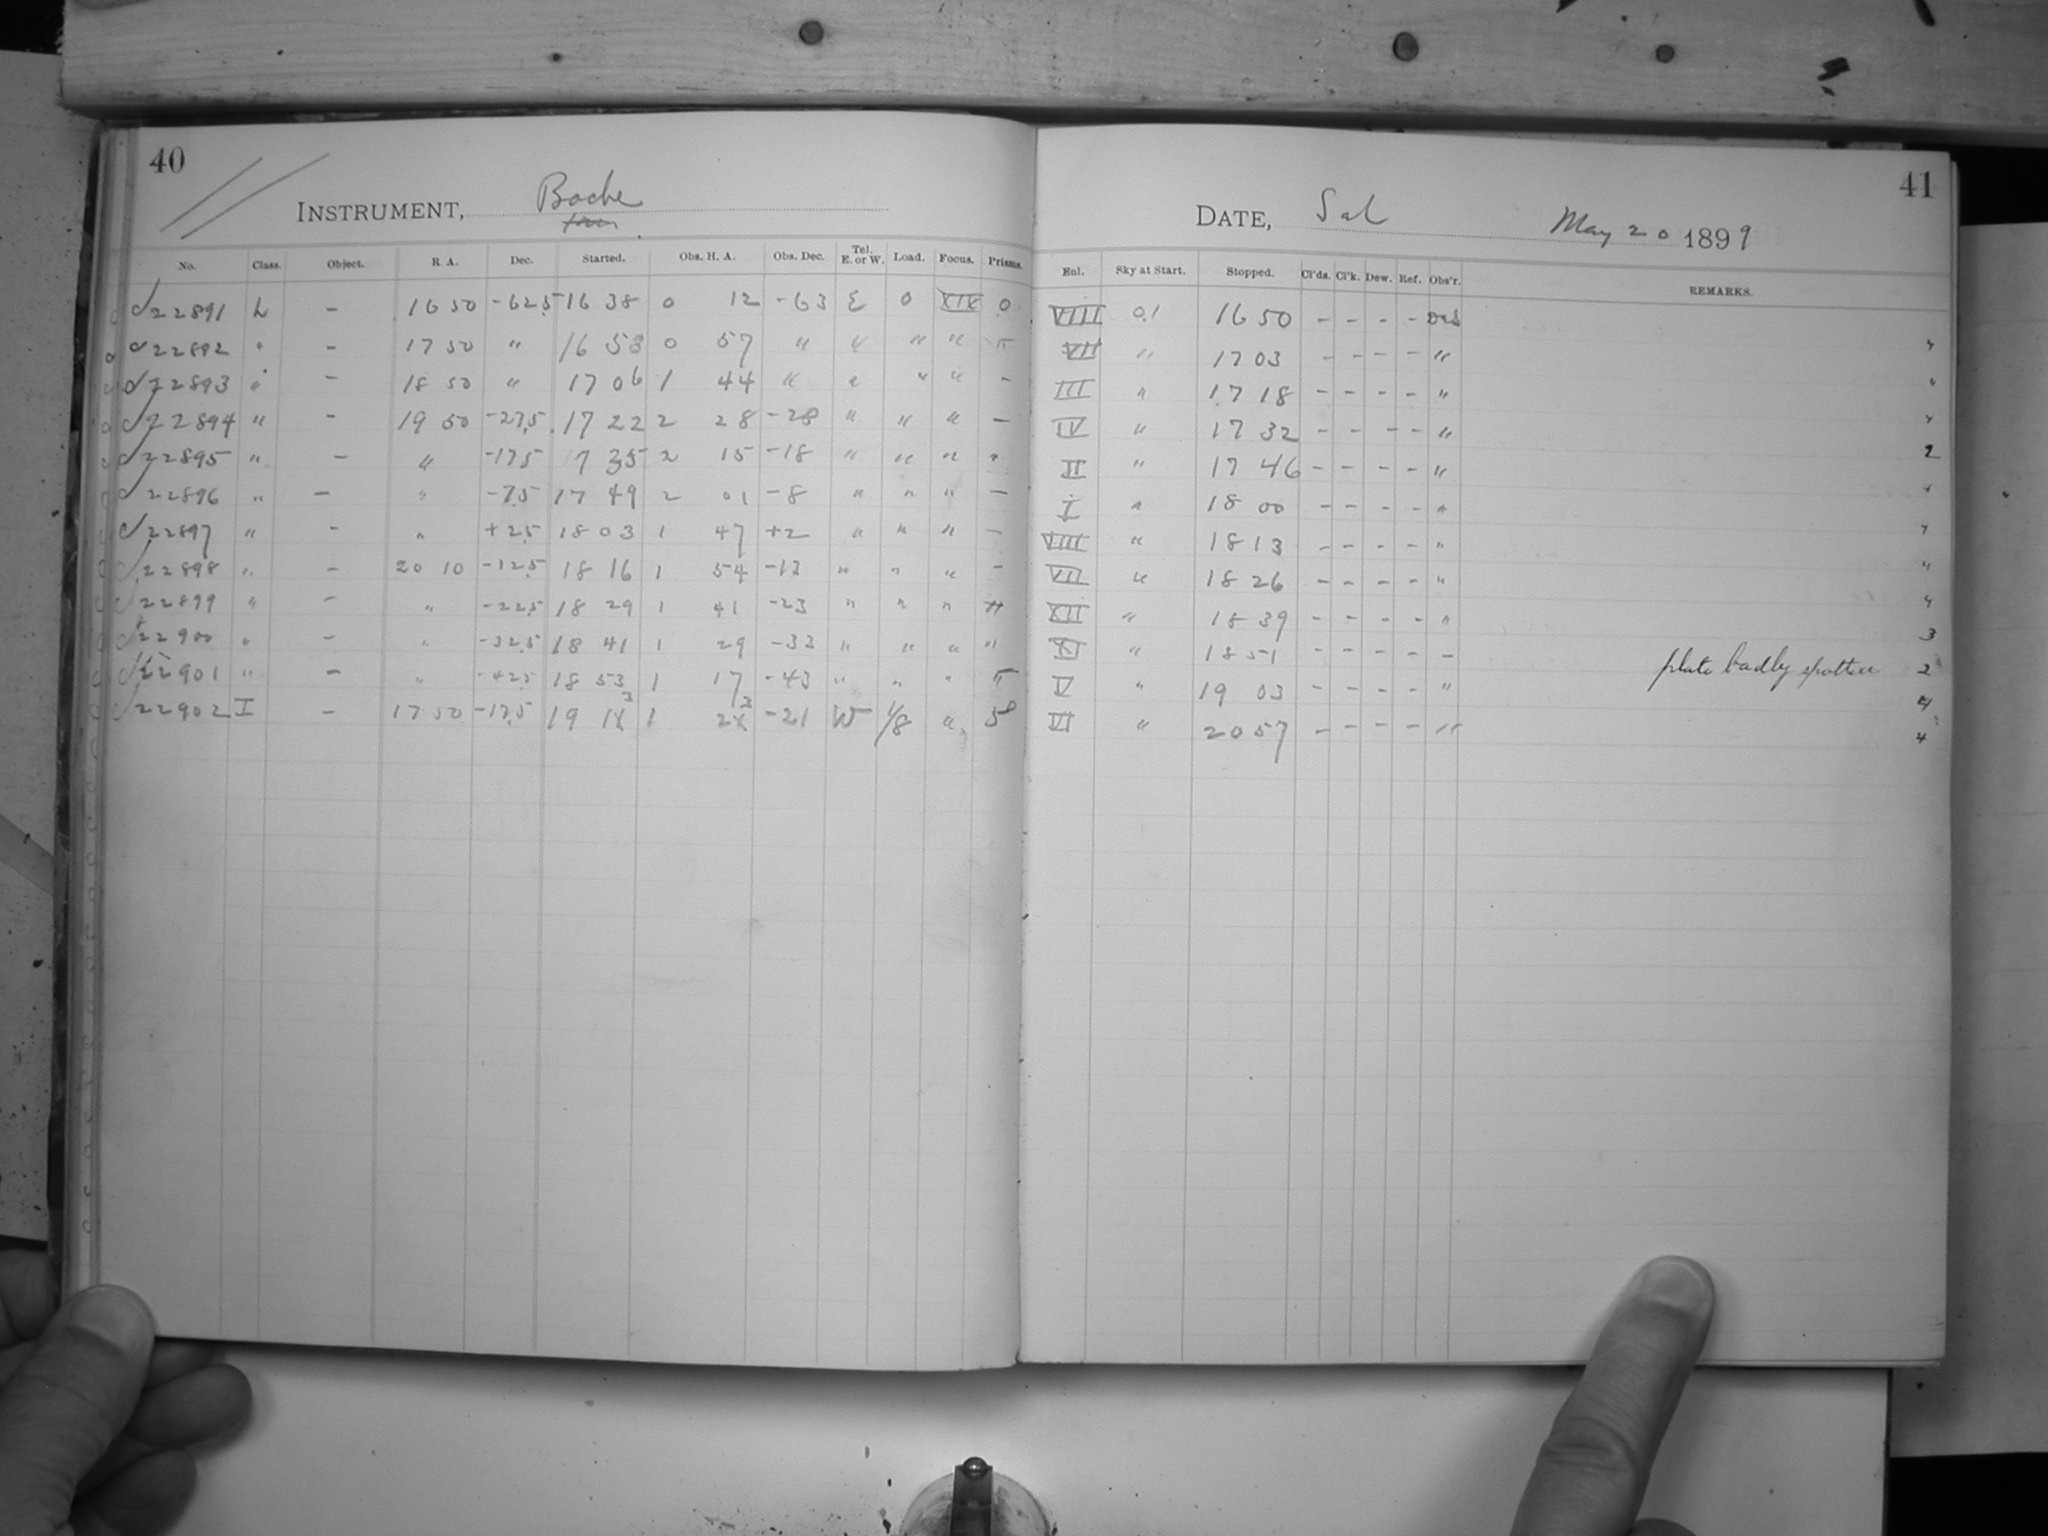 40
INSTRUMENT, Bache
No. Class. Object. R A. Dec. Started. Obs. H. A. Obs. Dec. Tel. E. or W. Load. Focus. Prisms.
22891 L - 16 50 -62.5 16 38 0 12 -63 E 0 XIX 0
22892 " - 17 50 " 16 53 0 57 " " " " "
22893 " - 18 50 " 17 06 1 44 " " " " -
22894 " - 19 50 -27.5 17 22 2 28 -28 " " " -
22895 " - " -17.5 17 35 2 15 -18 " " " "
22896 " - " -7.5 17 49 2 01 -8 " " " -
22897 " - " +2.5 18 03 1 47 +2 " " " -
22898 " - 20 10 -12.5 18 16 1 54 -13 " " " -
22899 " - " -22.5 18 29 1 41 -23 " " " "
22900 " - " -32.5 18 41 1 29 -33 " " " "
22901 " - " -42.5 18 53 1 17 -43 " " " "
22902 I - 17 50 -17.5 19 13 1 23 -21 W 1/8 "
41
DATE, Sat May 20 1899
Enl. Sky at Start. Stopped. Cl'ds. Cl'k. Dew. Ref. Obs'r. REMARKS.
VIII 0.1 16 50 - - - -
VII " 17 03 - - - - " 4
III " 17 18 - - - - " 4
IV " 17 32 - - - - " 4
II " 17 46 - - - - " 2
I " 18 00 - - - - " 4
VIII " 18 13 - - - - " 4
VII " 18 26 - - - - " 4
XII " 18 39 - - - - " 4
XI " 18 51 - - - - - 3
V " 19 03 - - - - " plate badly spotted 2
VI " 20 57 - - - - " 4
4